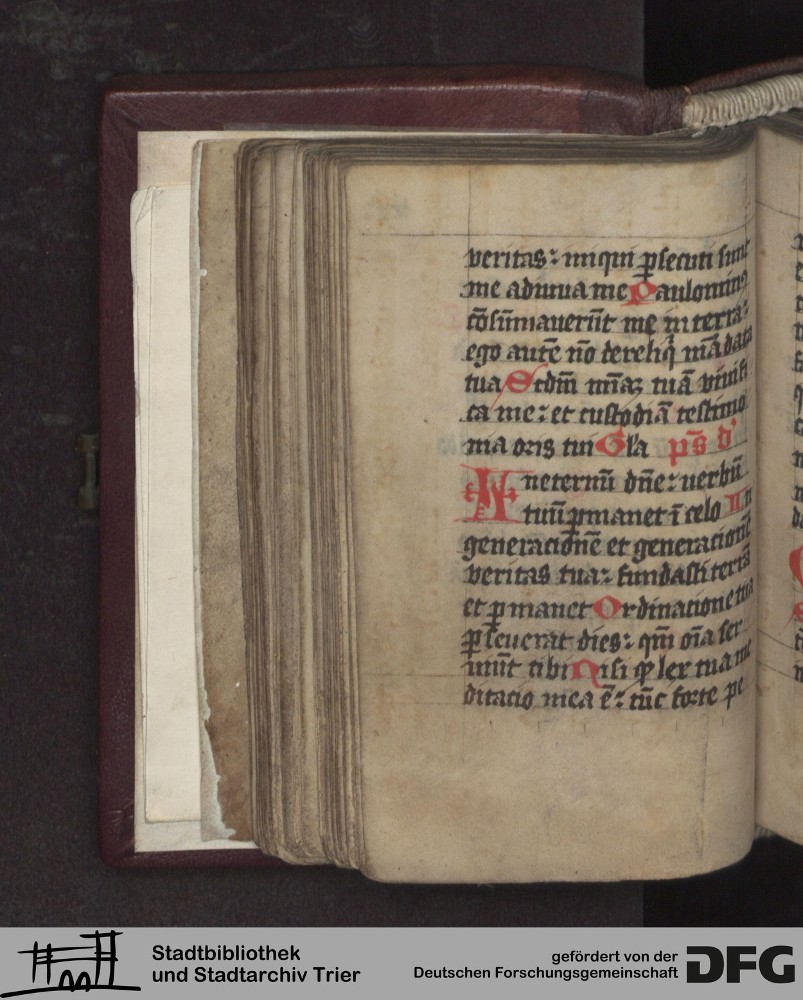 veritas: iniqui ꝑsecuti sunt
me adiuua me Paulominꝰ
cōsūmauerūt me in terra:
ego autē nō dereliq̄ mādata
tua Scdm̄ mīaꝫ tuā viuifi
ca me: et custodiā testimo
nia oris tui Gla ps̄ d'
In eternū dn̄e: uerbū
tuū ꝑmanet ī celo In
generacionē et generacionē
veritas tua: fundasti terrā
et ꝑmanet Ordinatione tua
ꝑseuerat dies: qm̄ oīa ser
uiūt tibi Nisi ꝙ lex tua me
ditacio mea ē: tūc forte pe
Stadtbibliothek
und Stadtarchiv Trier
gefördert von der
Deutschen Forschungsgemeinschaft
DFG